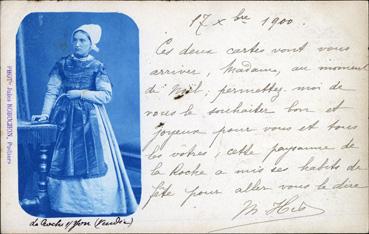 17 Xbre 1900.
Ces deux cartes vont vous
arriver, Madame, au moment
de Noël; permettez-moi de
vous le souhaiter bon et
joyeux pour vous et tous
les vôtres; cette paysanne de
la Roche a mis ses habits de
fête pour aller vous le dire
PHOT. Jules ROBUCHON, Poitiers
La Roche s/Yon (Vendée)